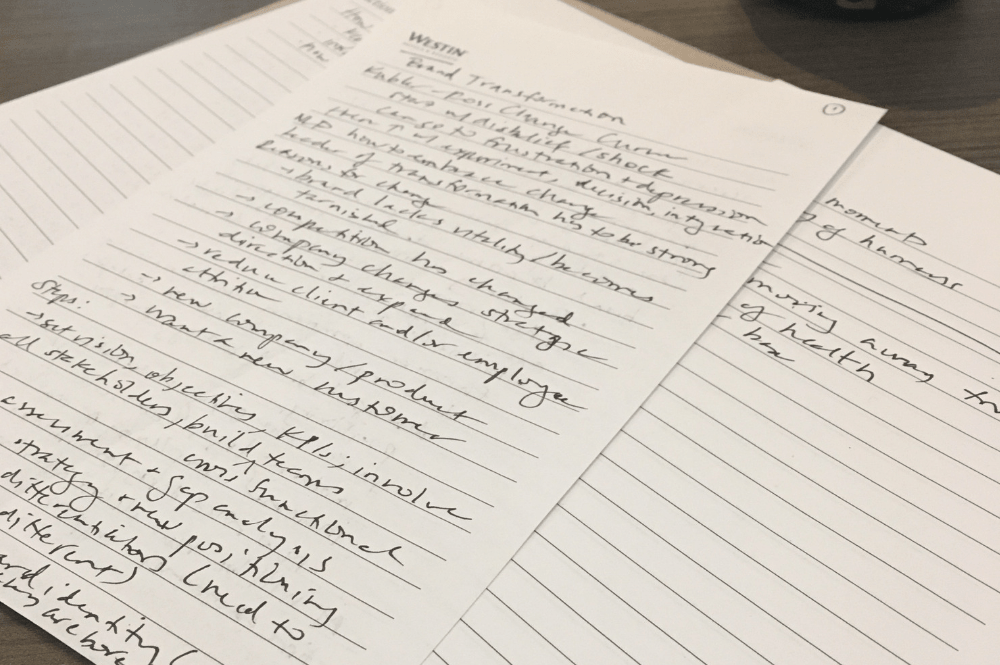 WESTIN
①
Brand Transformation
Kubler-Ross Change Curve
Start w/ disbelief/shock
Change to frustration + depression
then w/ experiment, decision, integration
how to embrace change
leader of transformation has to be strong
Reasons for change
→ brand lacks vitality/becomes
tarnished.
→ competition has changed.
→ company changes strategic
direction + expand
→ reduce client and/or employee
attrition
→ new company/product
→ want a new customer
Steps:
→ set vision, objectives, KPIs; involve
all stakeholders, build teams
cross functional
assessment + gap analysis
strategy + new positioning
differentiators (need to
different)
identity (
moments
of
moving away
of health
box